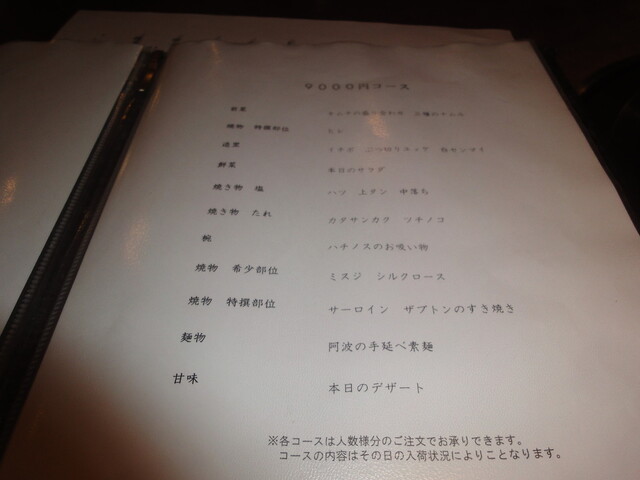 9000円コース
前菜 キムチの盛り合わせ 三種のナムル
焼物 特撰部位 ヒレ
造里
野菜 本日のサラダ
焼き物 塩 ハツ 上タン 中落ち
焼き物 たれ カタサンカク ツチノコ
椀 ハチノスのお吸い物
焼物 希少部位 ミスジ シルクロース
焼物 特撰部位 サーロイン ザブトンのすき焼き
麺物 阿波の手延べ素麺
甘味 本日のデザート
※各コースは人数様分のご注文でお承りできます。
コースの内容はその日の入荷状況によりことなります。